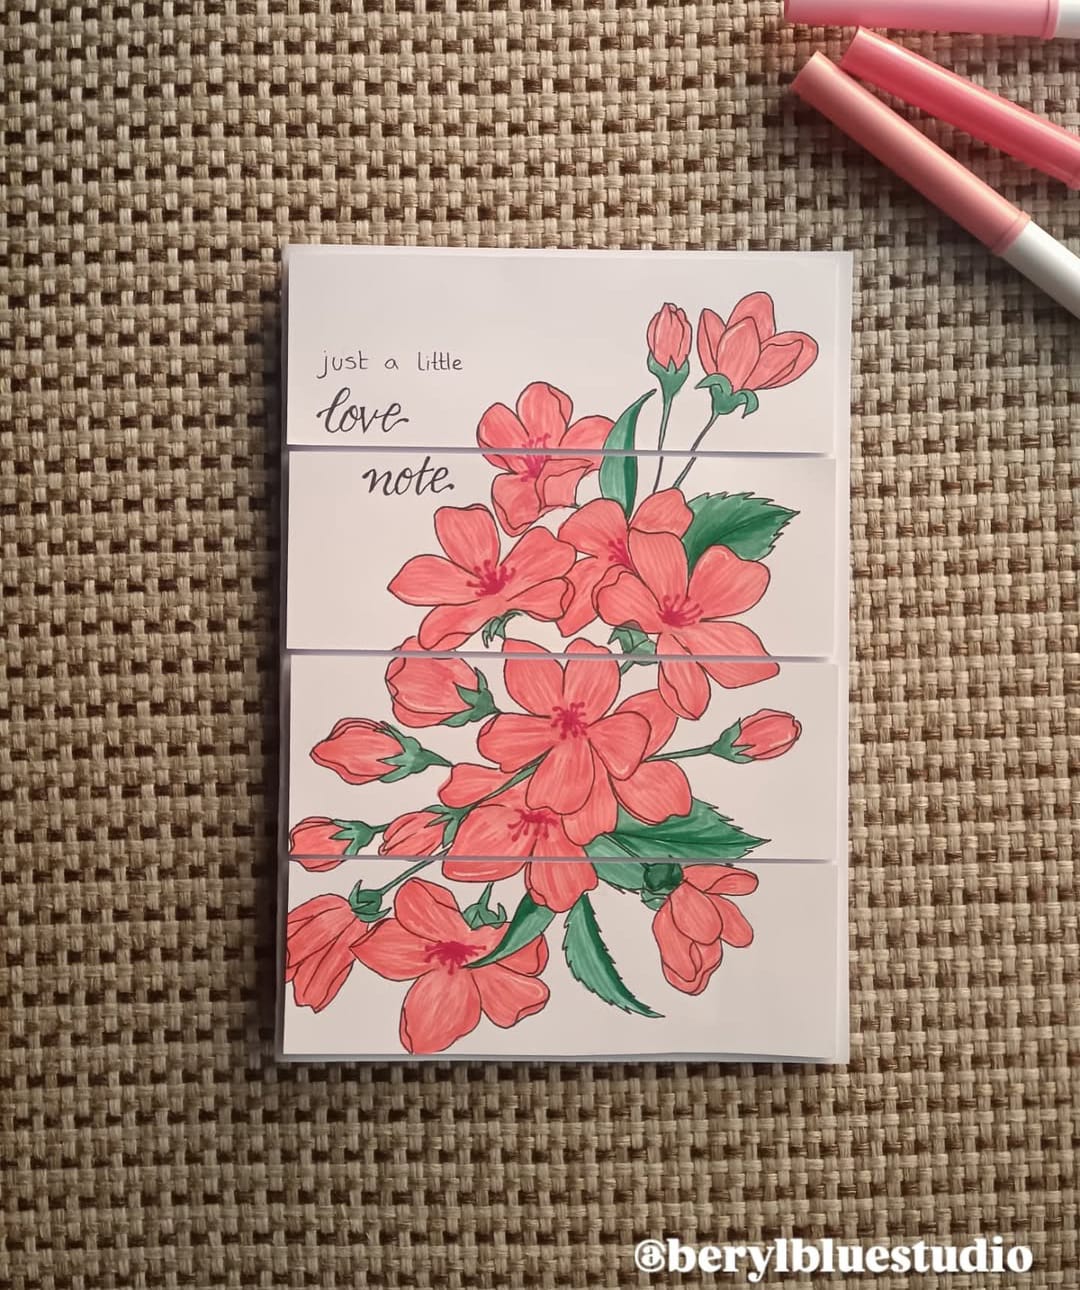 just a little
love
note
@berylbluestudio